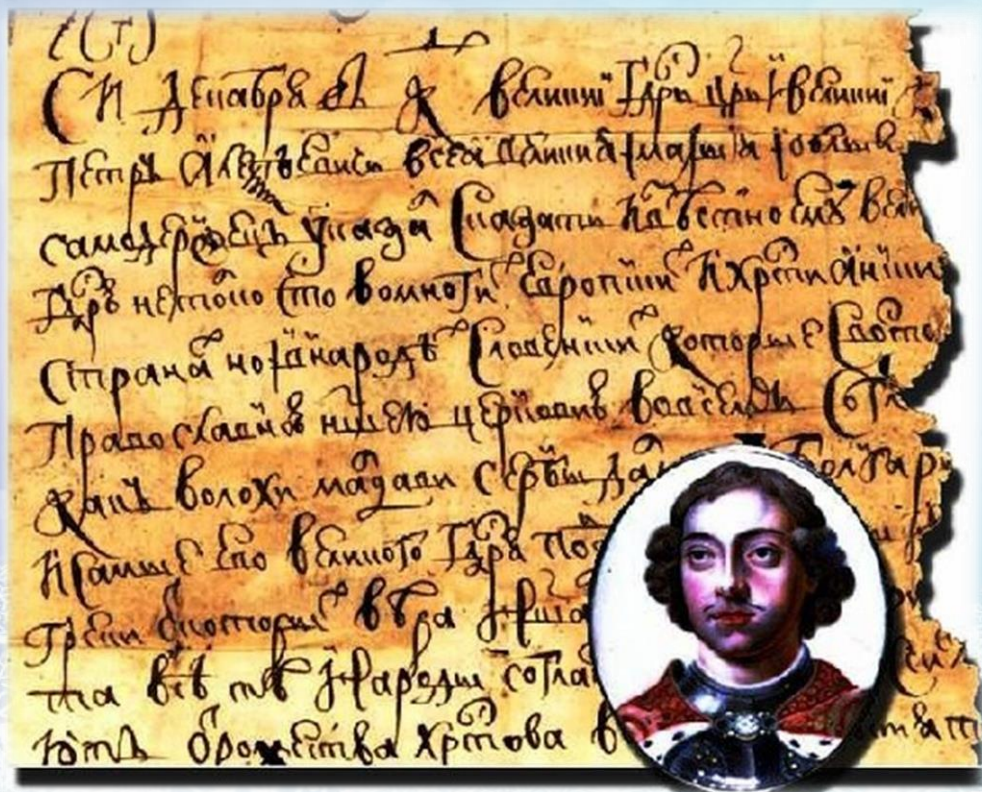 СИ декабря въ К велики гдрь црь и велики
Петръ Алеѣевичь всеа великиа и малыа и белыа
самодержецъ указа сказати извѣстно ему вели
гдрю нетокмо что вомноги европски и христиански
страна но и внарода словенски которые свосто
православною нашею церковию вовсемъ сгла
какъ волохи молдави сербы да болгары
и самые его великого гдря под
греки от которы вѣра наша
та всѣ тѣ народы согла
ютъ от рожества христова в